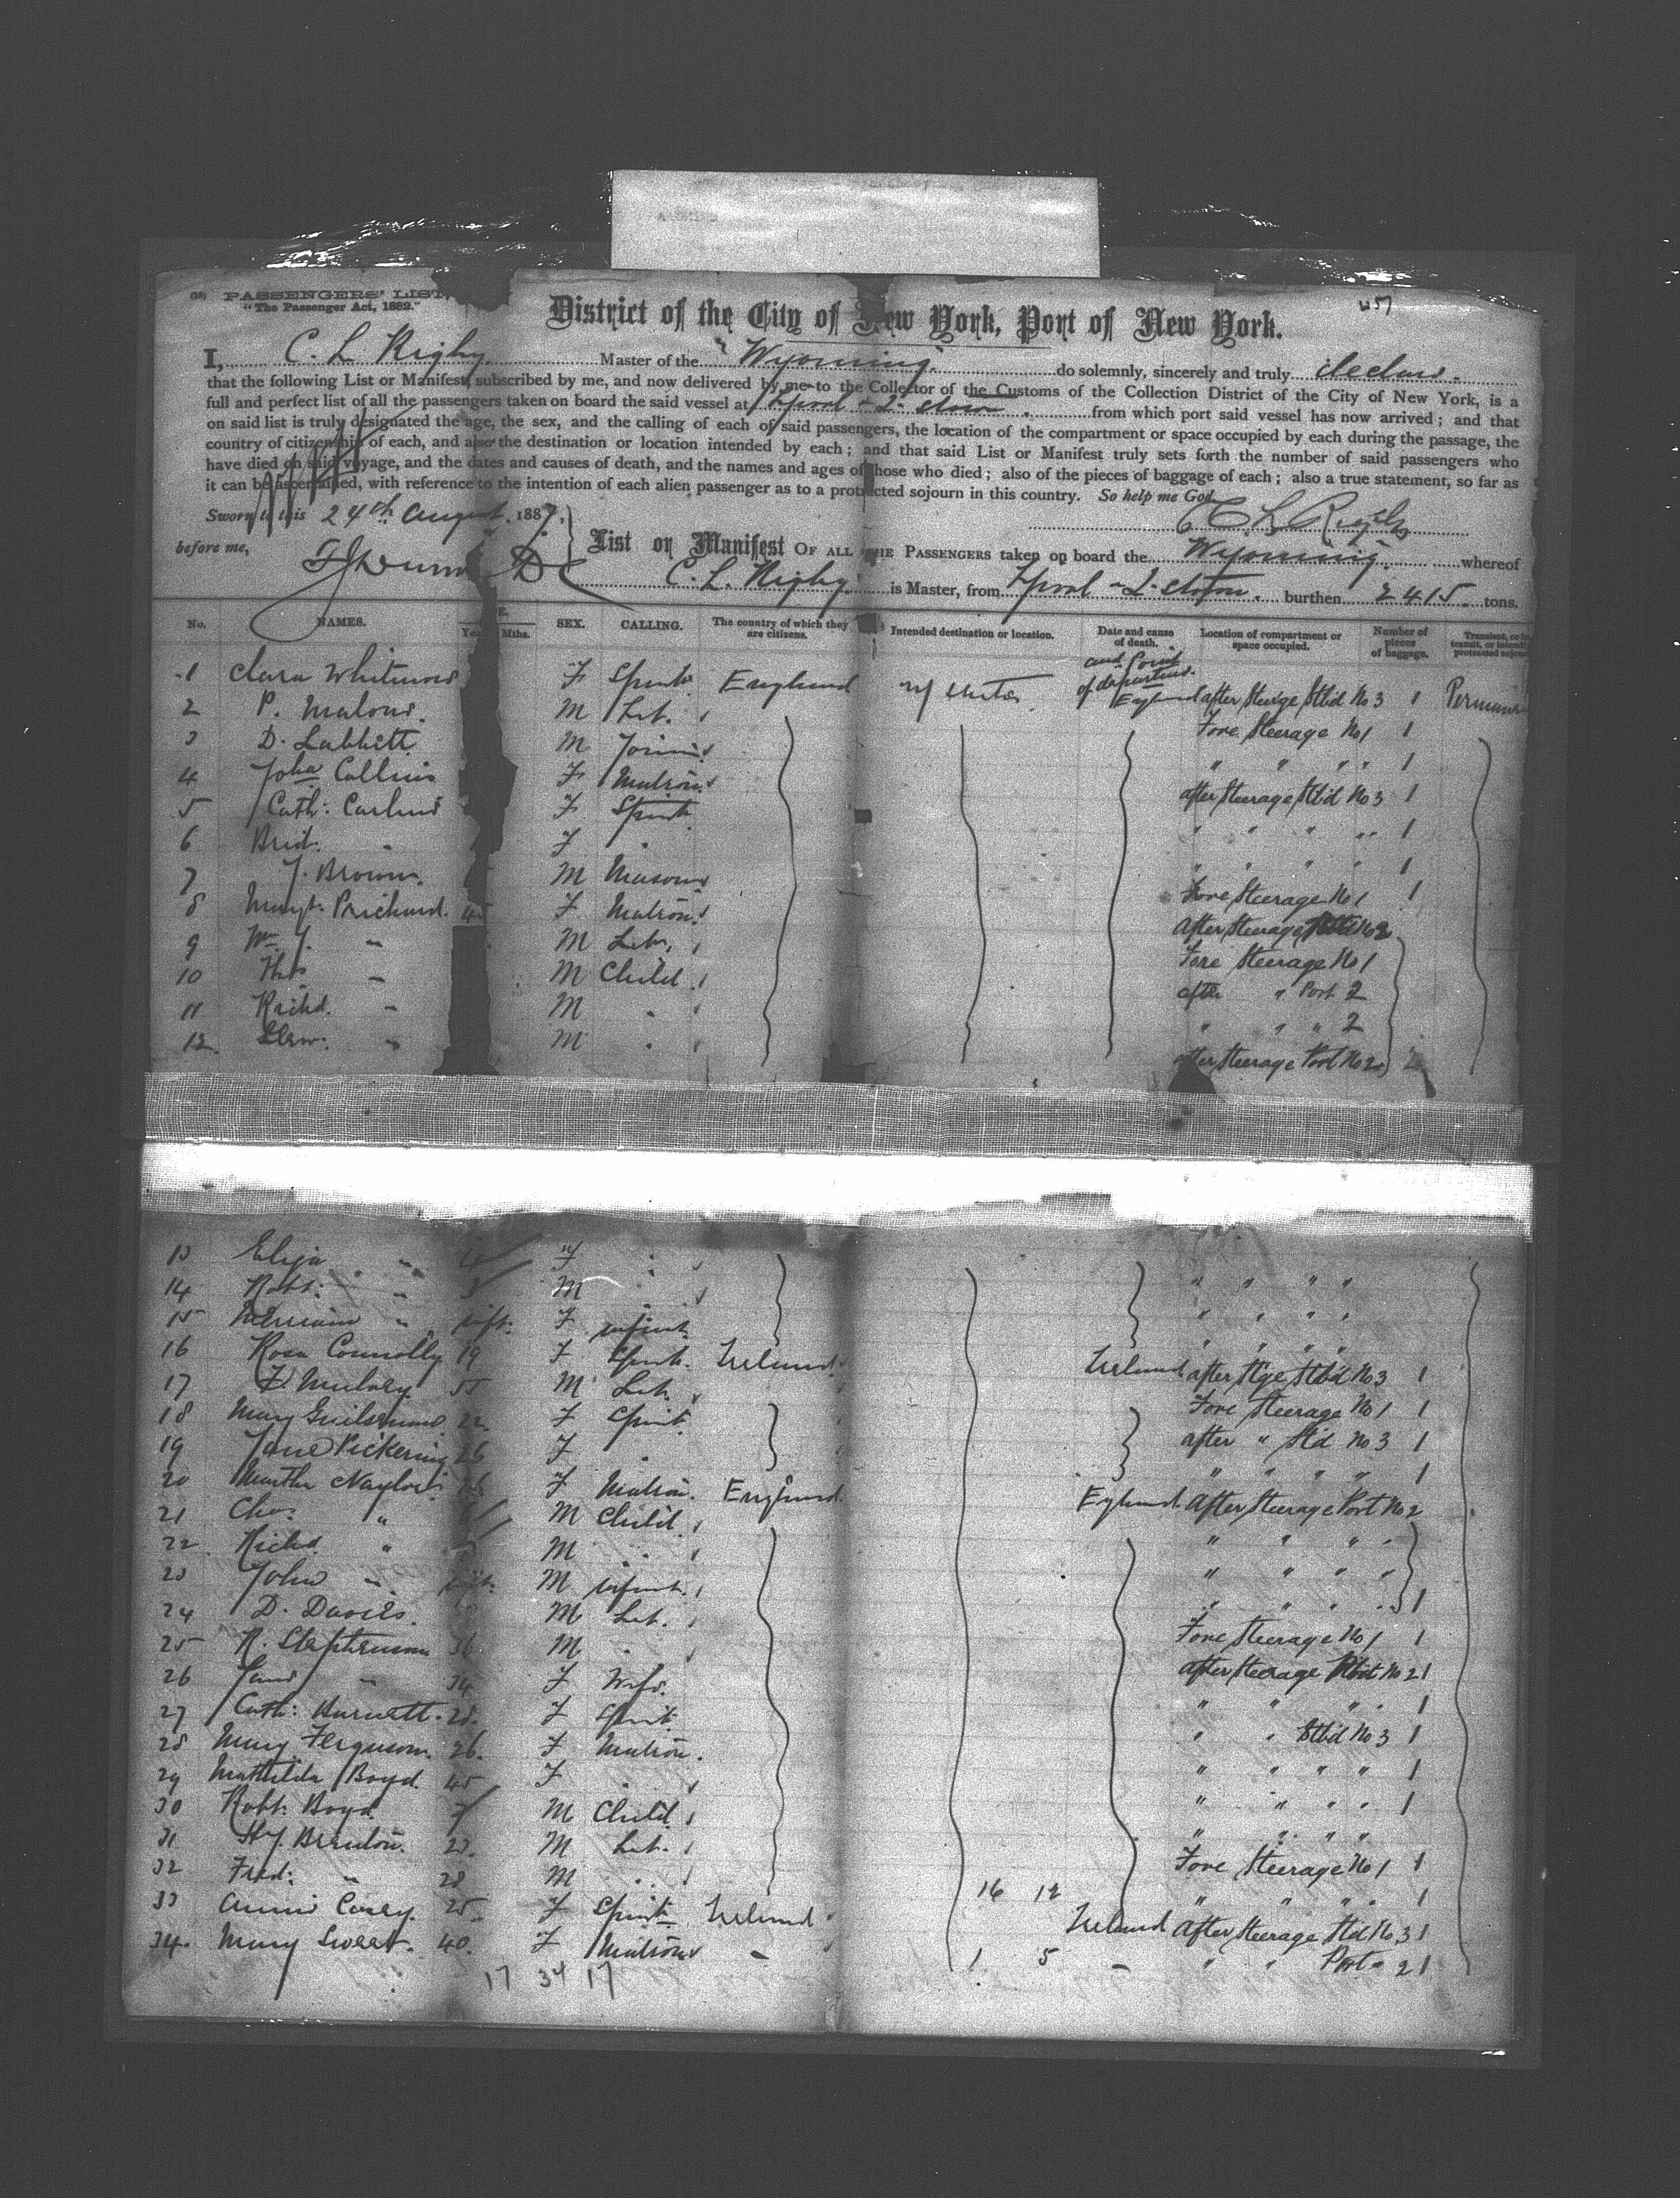 (18) PASSENGERS' LIST,
"The Passenger Act, 1882."
457
District of the City of New York, Port of New York.
I, C. L Rigby Master of the "Wyoming" do solemnly, sincerely and truly declare.
that the following List or Manifest, subscribed by me, and now delivered by me to the Collector of the Customs of the Collection District of the City of New York, is a
full and perfect list of all the passengers taken on board the said vessel at L'pool & Q. stown. from which port said vessel has now arrived; and that
on said list is truly designated the age, the sex, and the calling of each of said passengers, the location of the compartment or space occupied by each during the passage, the
country of citizenship of each, and also the destination or location intended by each; and that said List or Manifest truly sets forth the number of said passengers who
have died on said voyage, and the dates and causes of death, and the names and ages of those who died; also of the pieces of baggage of each; also a true statement, so far as
it can be ascertained, with reference to the intention of each alien passenger as to a protracted sojourn in this country. So help me God.
Sworn to this 24th August. 1887, C L Rigby
before me, List or Manifest OF ALL THE PASSENGERS taken on board the Wyoming whereof
C. L. Rigby. is Master, from L'pool & Q. stown. burthen 2415. tons.
No. NAMES. Mths. SEX. CALLING. The country of which they are citizens. Intended destination or location. Date and cause of death. Location of compartment or space occupied. Number of pieces of baggage.
and Point of departure.
1 Clara Whitmore F Spinst. England England after Steerage Stbd No 3 1
2 P. Malone. M Lab. Fore Steerage No 1 1
3 D. M " " " " 1
4 Collins F Matron after Steerage Stbd No 3 1
5 Cath: F Spinst. " " " " 1
6 Brid: " F " " " " " 1
7 J. Brown. M Mason Fore Steerage No 1 1
8 Margt. Prichard. 45 F Matron. After Steerage
9 Wm. J. " M Lab. Fore Steerage No 1
10 Thos " M Child. after " Port 2
11 Richd. " M " " " " 2
12. " M " after Steerage Port No 2
13 Eliza " F " " " " "
14 Robt: " M " " " " "
15 " inft. F infant. " " " "
16 Rosa Connolly 19 F Spinst. Ireland Ireland after Stge Stbd No 3 1
17 55 M Lab. Fore Steerage No 1 1
18 Mary 22. F Spinst. after " Stbd No 3 1
19 Jane Pickering 26 F " " " " " 1
20 Martha Naylor F Matron. England England After Steerage Port No 2
21 Chas. " 6 M Child. " " " "
22 Richd. " M " " " " "
23 John " inft. M infant. " " " " 1
24 D. Davies. M Lab. Fore Steerage No 1 1
25 R. Stephenson 36 M " after Steerage Port No 2 1
26 Jane " 34 F Wife. " " " 1
27 Cath: Burnett. 28. F Spinst. " " Stbd No 3 1
28 Mary Ferguson. 26. F Matron. " " " " 1
29 Mathilda Boyd. 45 F " " " " " 1
30 Robt. Boyd. 7 M Child. " " " "
31 Hy. 23. M Lab. Fore Steerage No 1 1
32 Fred: " 28 M " " " " " 1
16 12
33 Annie 25. F Spinst. Ireland Ireland After Steerage Stbd No 3 1
34. Mary Sweet. 40. F Matron " 1 5 " " " Port " 2 1
17 34 17